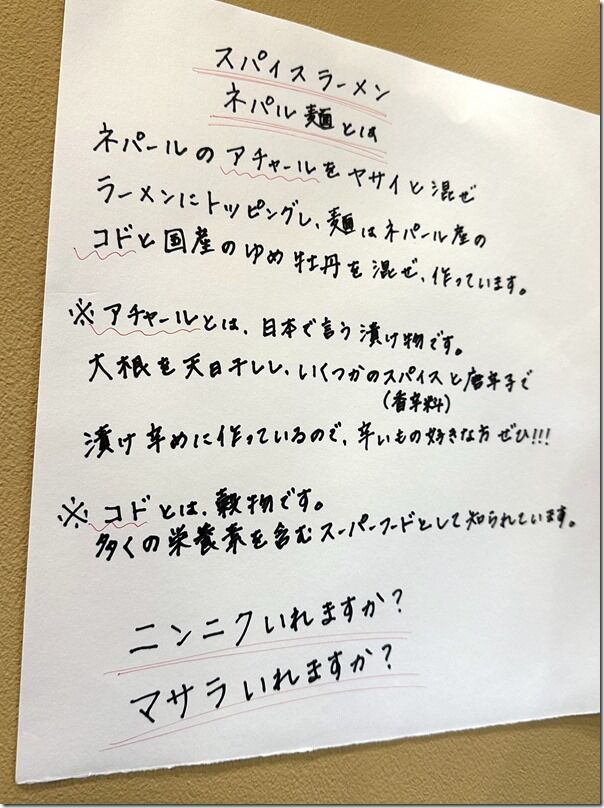 スパイスラーメン
ネパル麺とは
ネパールのアチャールをヤサイと混ぜ
ラーメンにトッピングし、麺はネパール産の
コドと国産のゆめ牡丹を混ぜ、作っています。
※アチャールとは、日本で言う漬け物です。
大根を天日干しし、いくつかのスパイスと唐辛子で
(香辛料)
漬け辛めに作っているので、辛いもの好きな方ぜひ!!!
※コドとは、穀物です。
多くの栄養素を含むスーパーフードとして知られています。
ニンニクいれますか?
マサラいれますか?